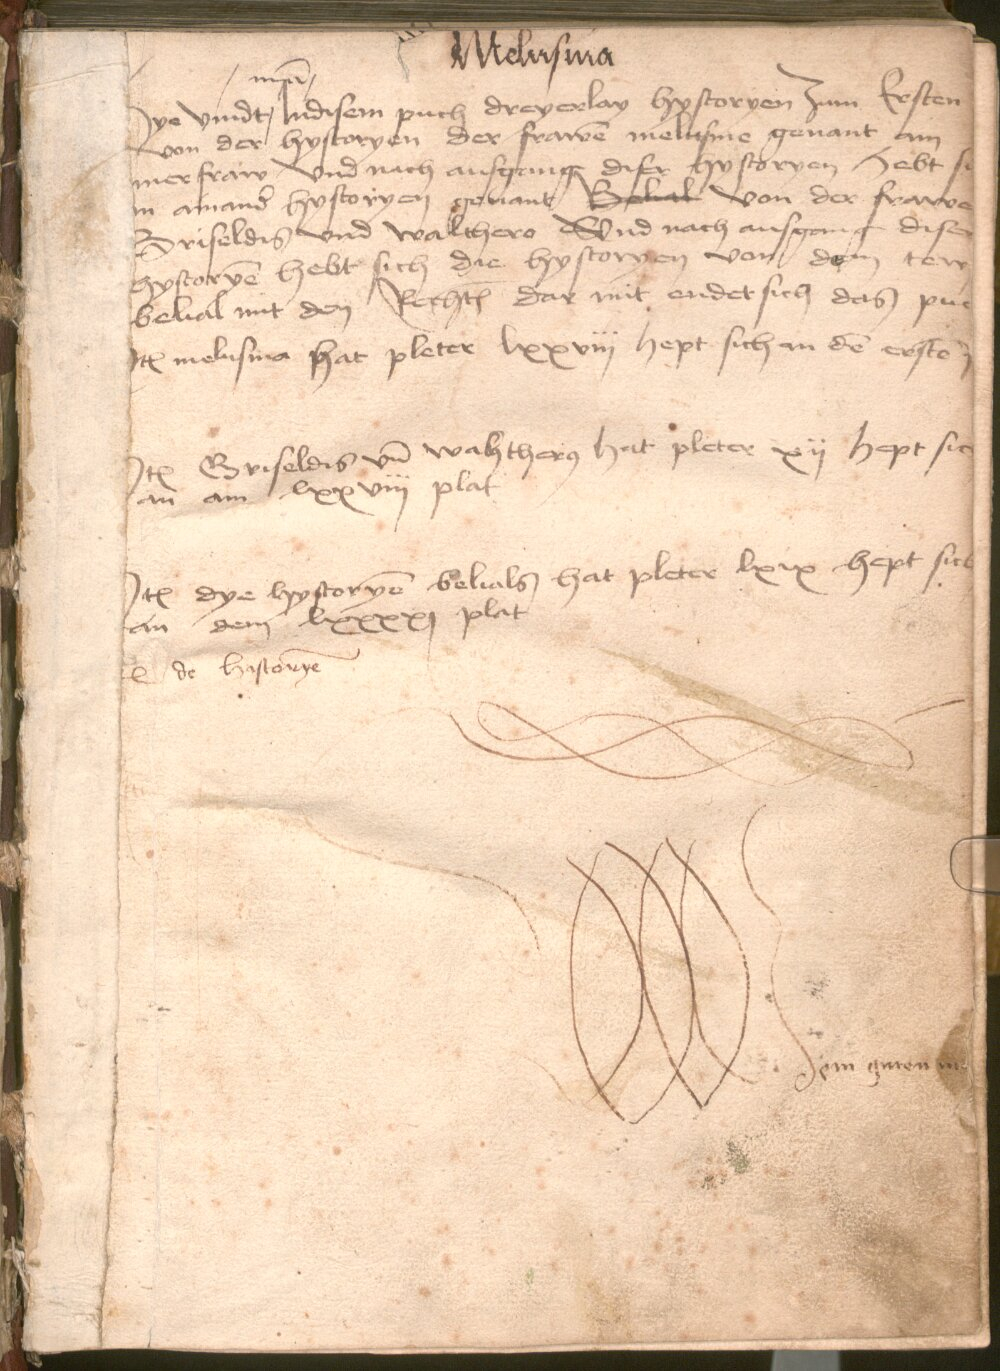 Melusina
man
Hye vindt Indisem puch dreyerlay hystoryen Zum Ersten
von der hystoryen der frawē melusine genant am
merfraw Vnd nach ausgang diser hystoryen Hebt si
in ainand hystoryen genant Belial von der frawe
Griseldis vnd walthero Vnd nach ausgang diser
hystoryē hebt sich die hystoryen von dem
belial mit den Rechtē dar mit endet sich das pue
Itē melusina hat pleter lxxviij hept sich an dē erstē
Itē Griseldis vn̄ waltherꝰ hat pleter xij hept sic
an am lxxviij plat
Itē dye hystoryē belials hat pleter lxix hept sich
an dem lxxxxj plat
de historyē
Dem guten